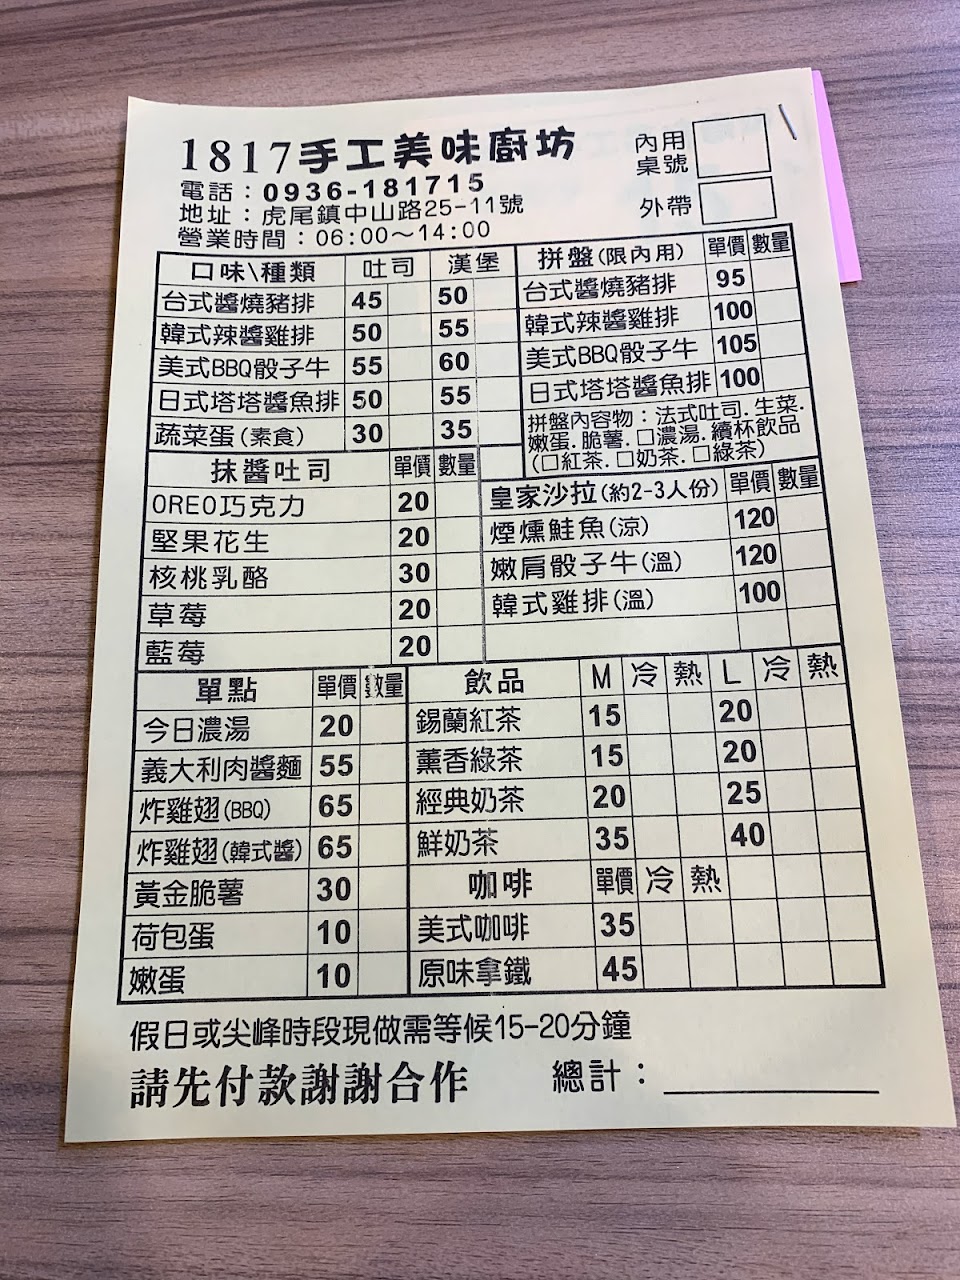 1817手工美味廚坊
電話：0936-181715
地址：虎尾鎮中山路25-11號
營業時間：06:00～14:00
內用
桌號
外帶
口味\種類 吐司 漢堡
台式醬燒豬排 45 50
韓式辣醬雞排 50 55
美式BBQ骰子牛 55 60
日式塔塔醬魚排 50 55
蔬菜蛋(素食) 30 35
拼盤(限內用) 單價 數量
台式醬燒豬排 95
韓式辣醬雞排 100
美式BBQ骰子牛 105
日式塔塔醬魚排 100
拼盤內容物：法式吐司.生菜.
嫩蛋.脆薯.□濃湯.續杯飲品
(□紅茶.□奶茶.□綠茶)
抹醬吐司 單價 數量
OREO巧克力 20
堅果花生 20
核桃乳酪 30
草莓 20
藍莓 20
皇家沙拉(約2-3人份) 單價 數量
煙燻鮭魚(涼) 120
嫩肩骰子牛(溫) 120
韓式雞排(溫) 100
單點 單價 數量
今日濃湯 20
義大利肉醬麵 55
炸雞翅(BBQ) 65
炸雞翅(韓式醬) 65
黃金脆薯 30
荷包蛋 10
嫩蛋 10
飲品 M 冷 熱 L 冷 熱
錫蘭紅茶 15 20
薰香綠茶 15 20
經典奶茶 20 25
鮮奶茶 35 40
咖啡 單價 冷 熱
美式咖啡 35
原味拿鐵 45
假日或尖峰時段現做需等候15-20分鐘
請先付款謝謝合作 總計：